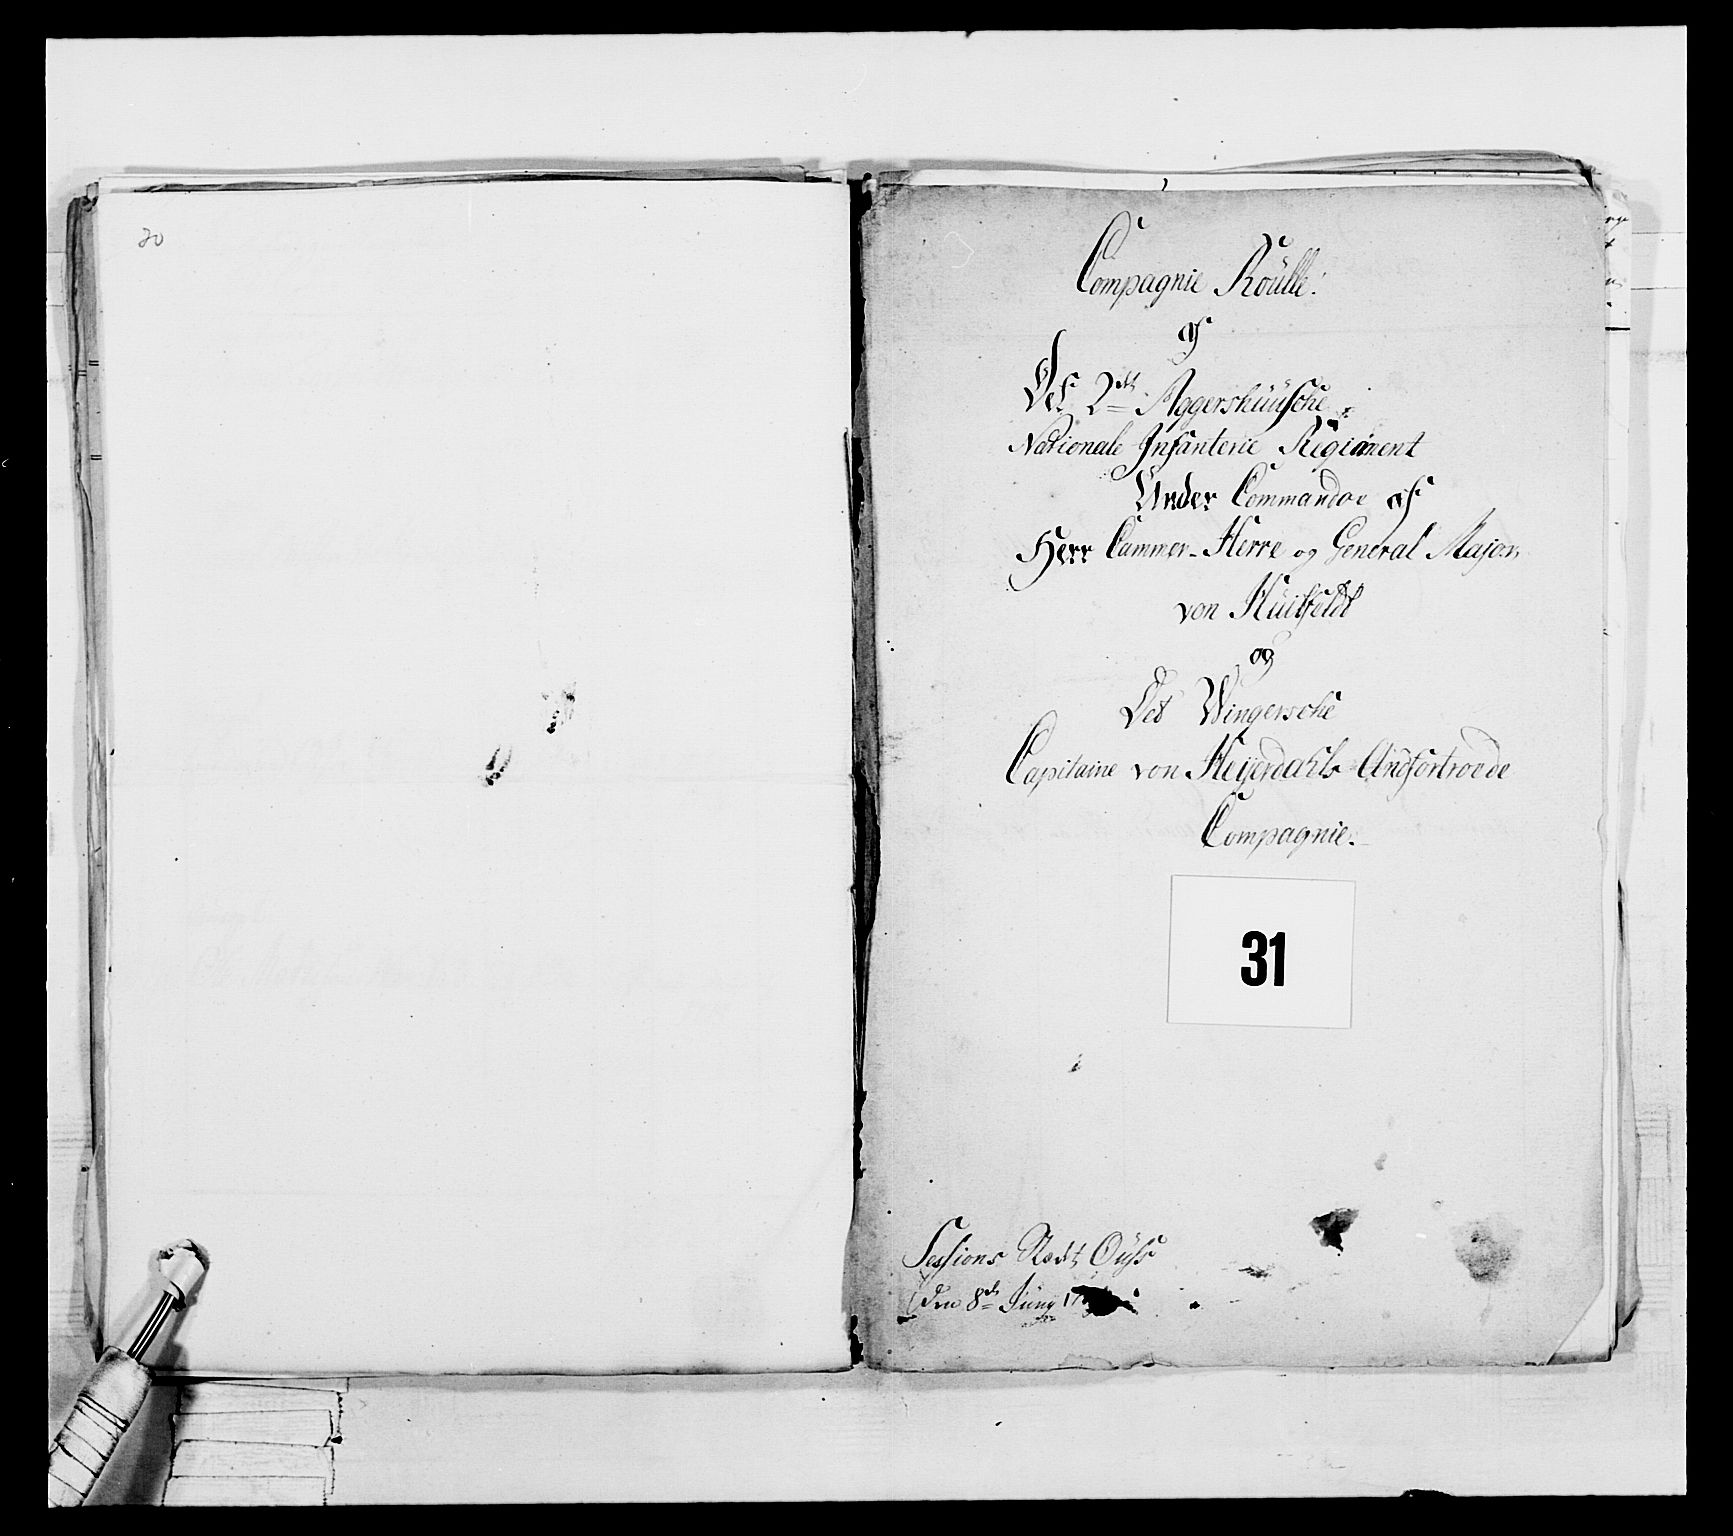 30
Compagnie Roulle.
af
Det 2det Aggershuusche
Nationale Infanterie Regiment
Under Commando af
Herr Cammer-Herre og General Major
von Huitfeldt
og
Det Wingersche
Capitaine von Heyerdahls Anfortroede
Compagnie.
31
Sessions Stædt Ouss
den 8de Juny 17